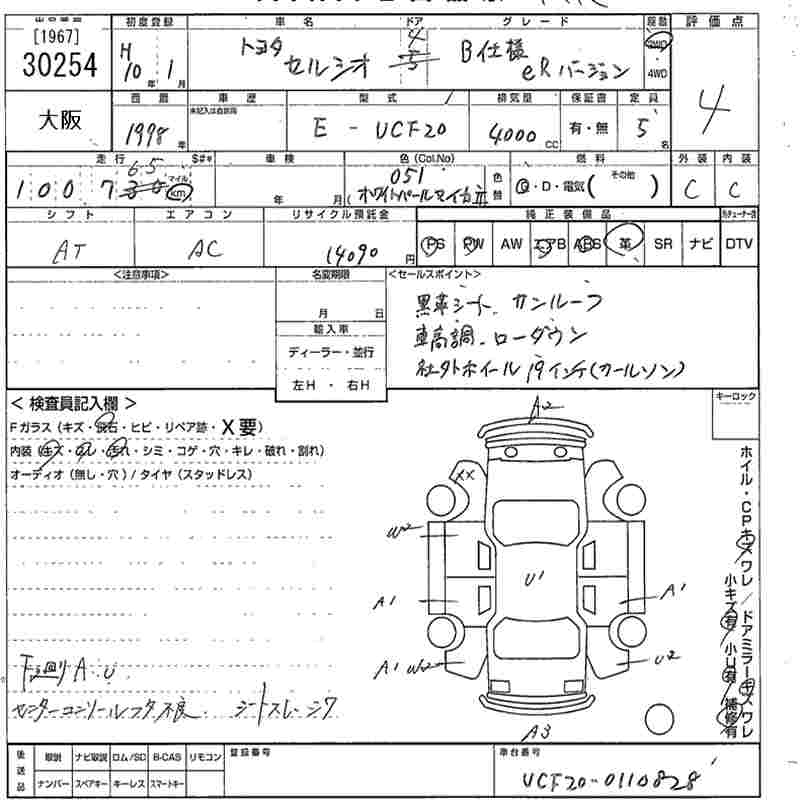 [1967]
30254
初度登録
車名
ドア
グレード
駆動
評価点
H 10年 1月
トヨタ セルシオ
4
5
B仕様
eRバージョン
2WD
4WD
4
大阪
西暦
車歴
型式
排気量
保証書
定員
未記入は自家用
1998年
E - UCF20
4000cc
有・無
5名
走行
S#*
車検
色(Col.No)
色替
燃料
外装
内装
65
10073 マイル km
年 月
051
ホワイトパールマイカⅡ
G・D・電気( その他 )
C
C
シフト
エアコン
リサイクル預託金
純正装備品
AT
AC
14090円
PS PW AW エアB ABS 革 SR ナビ DTV
<注意事項>
名変期限
<セールスポイント>
月 日
黒革シート、サンルーフ
輸入車
車高調、ローダウン
ディーラー・並行
社外ホイール 19インチ(カールソン)
左H・右H
<検査員記入欄>
キーロック
Fガラス(キズ・飛石・ヒビ・リペア跡・X要)
内装(キズ・スレ・汚れ・シミ・コゲ・穴・キレ・破れ・割れ)
オーディオ(無し・穴)/タイヤ(スタッドレス)
A2
XX
W2
U1
A1
A1
A1 W2
U2
A3
ホイル・CPキズワレ/ドアミラーキズワレ
小キズ有/小U有/補修有
下回りA.U
センターコンソールフタ不良、シートスレ・シワ
後送品
取説 ナビ取説 ロム/SD B-CAS リモコン
ナンバー スペアキー キーレス スマートキー
登録番号
車台番号
UCF20-0110828